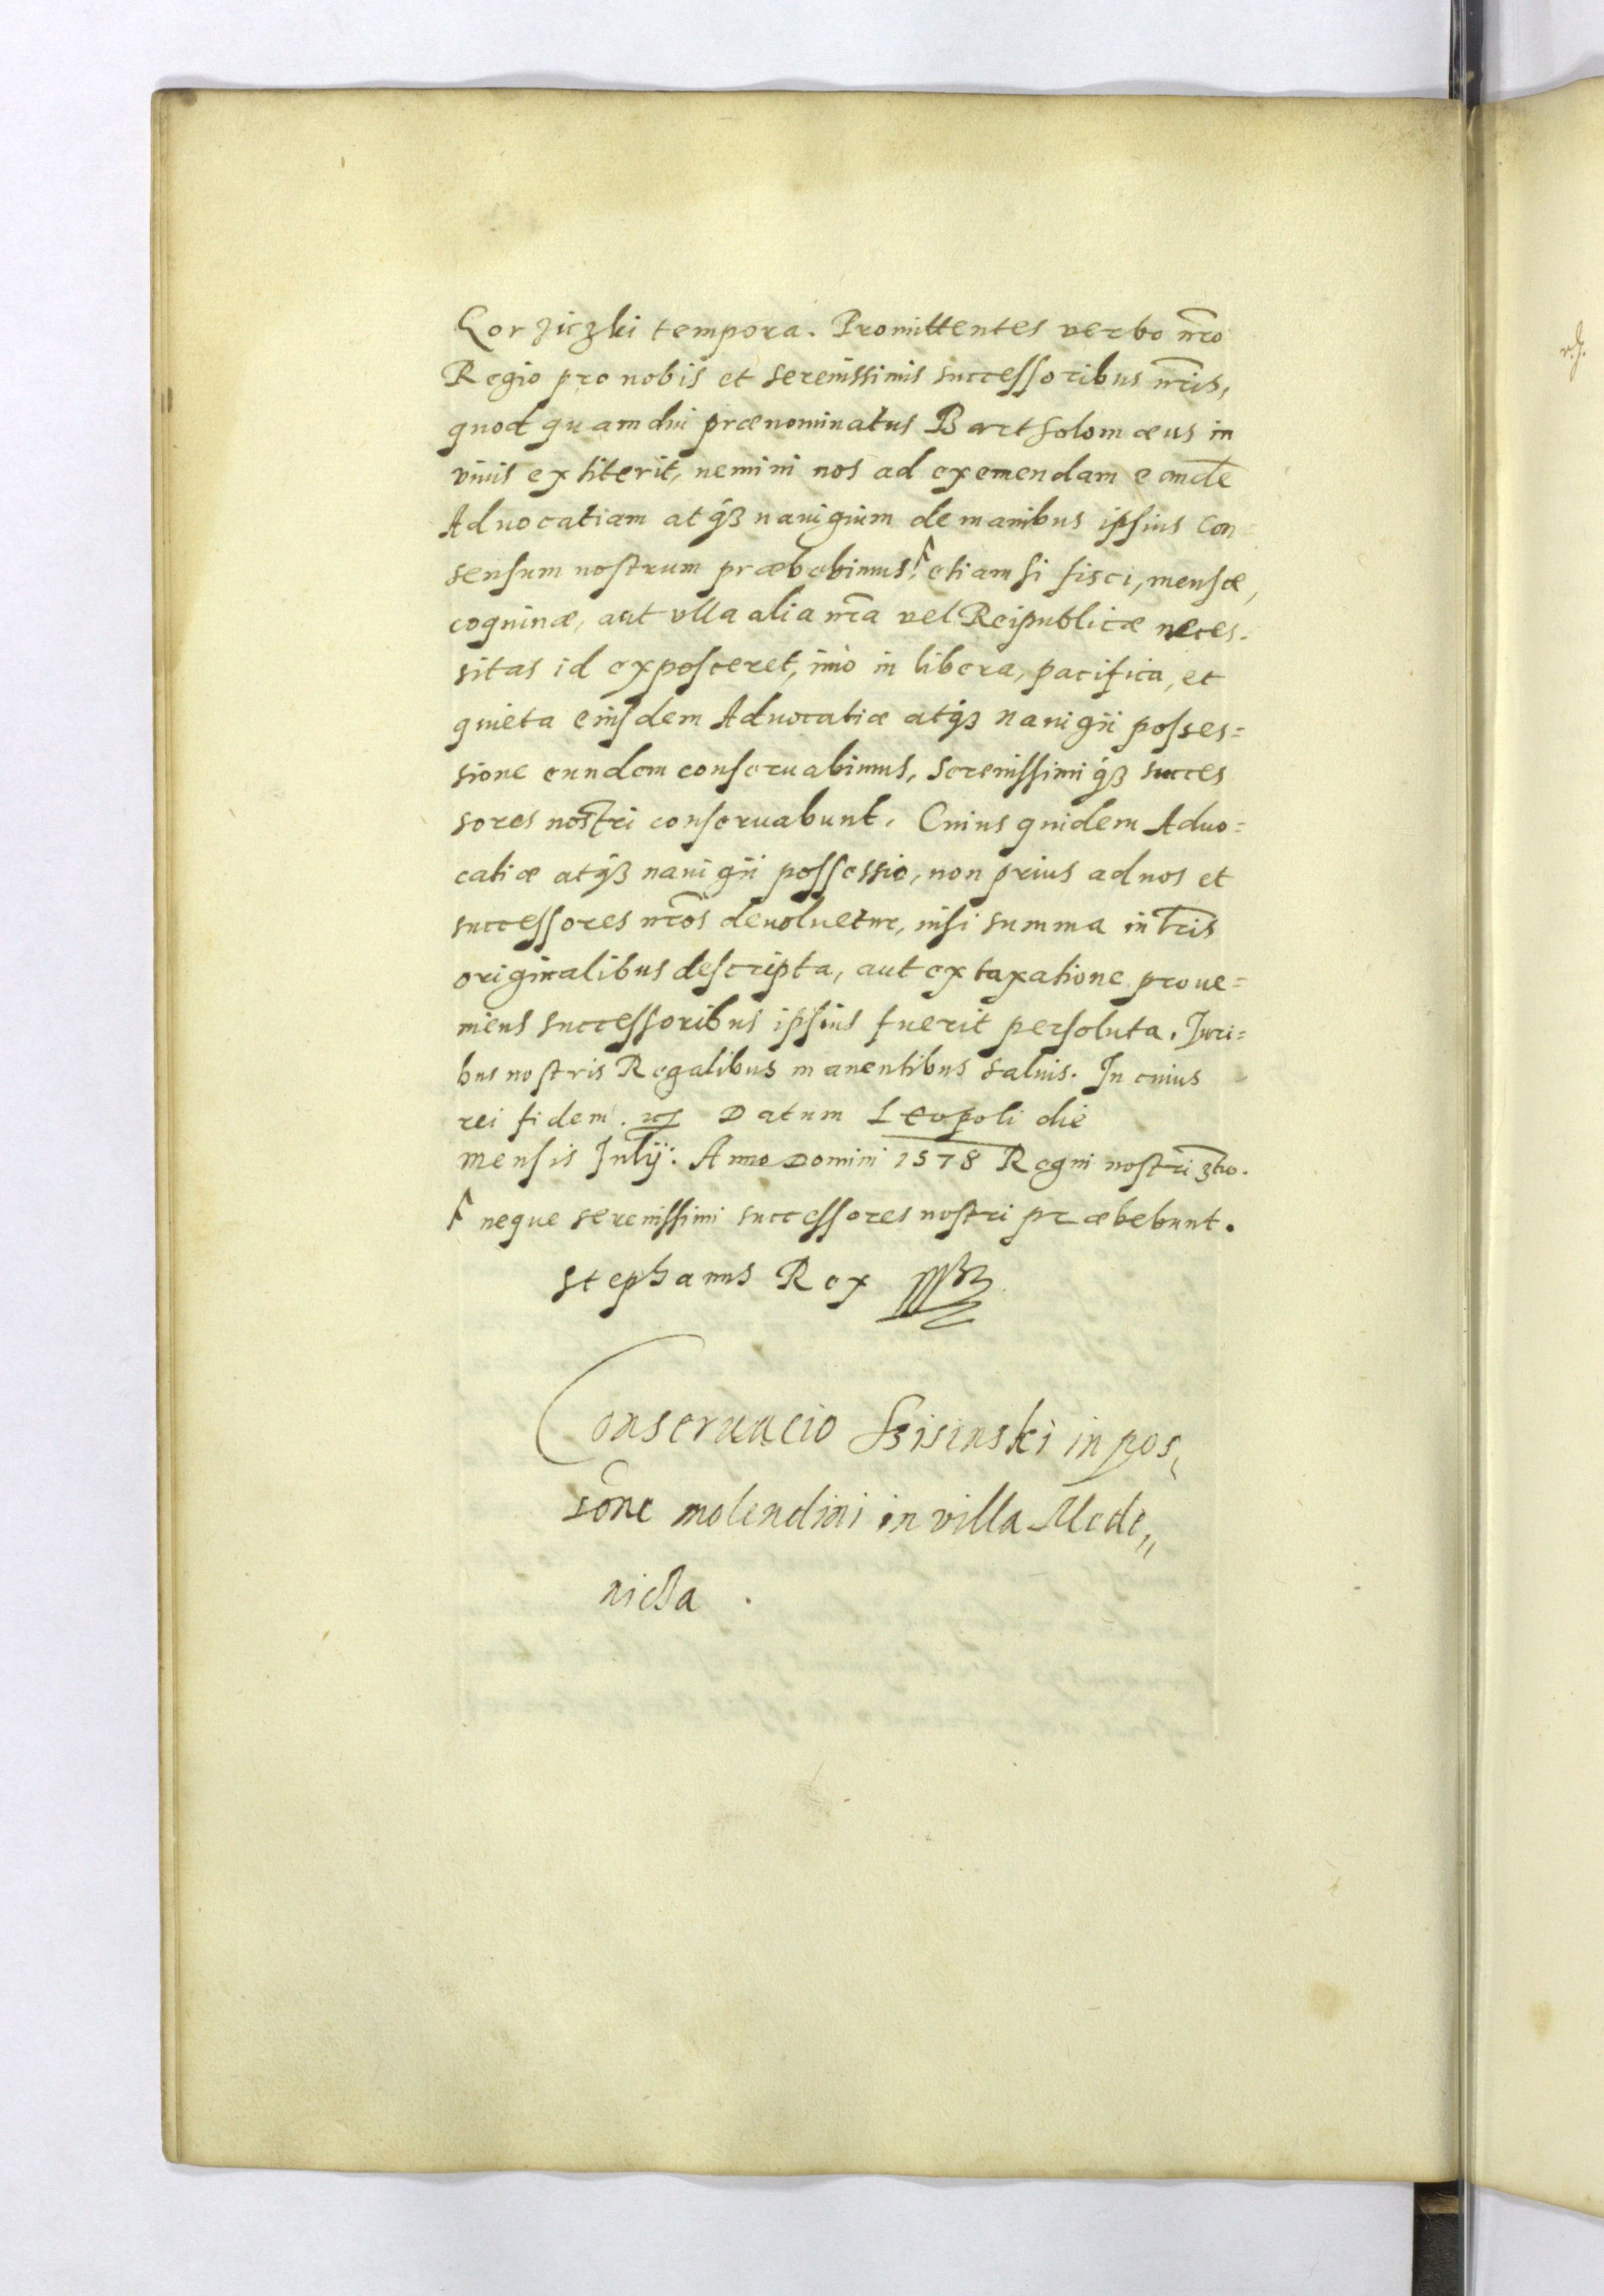 Gorziczki tempora. Promittentes verbo nr̃o
Regio pro nobis et serenissimis successoribus nr̃is,
quod quamdiu prænominatus Bartholomæus in
viuis extiterit, nemini nos ad exemendam eandẽ
Aduocatiam atqȝ nauigium de manibus ipsius con=
sensum nostrum præbebimus, etiam si fisci, mensæ,
coquinæ, aut vlla alia nr̃a vel Reipublicæ neces=
sitas id exposceret, imò in libera, pacifica, et
quieta eiusdem Aduocatiæ atqȝ nauigii posses=
sione eundem conseruabimus, serenissimi qȝ succes
sores nostri conseruabunt. Cuius quidem Aduo=
catiæ atqȝ nauigii possessio, non prius ad nos et
successores nr̃os deuoluetur, nisi summa in lr̃is
originalibus descripta, aut ex taxatione proue=
niens successoribus ipsius fuerit persoluta. Juri=
bus nostris Regalibus manentibus saluis. In cuius
rei fidem. Datum Leopoli die
mensis Julij: Anno Domini 1578 Regni nostri 3tio.
neque serenissimi successores nostri præbebunt.
Stephanus Rex
Conseruacio Ssisinski in pos,
sõne molendini in villa Mede,,
nicza.